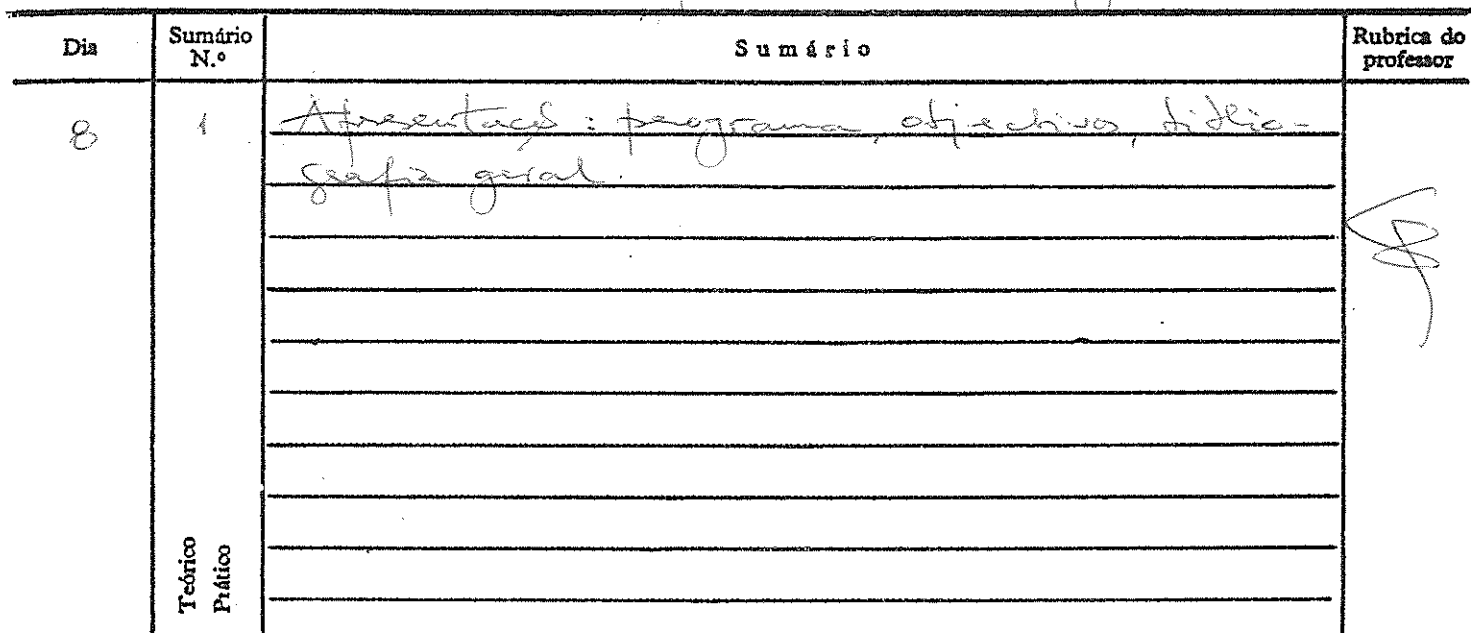 Dia
Sumário N.º
Sumário
Rubrica do professor
8
1
Apresentação: programa, objectivos, biblio-
grafia geral.
Teórico
Prático